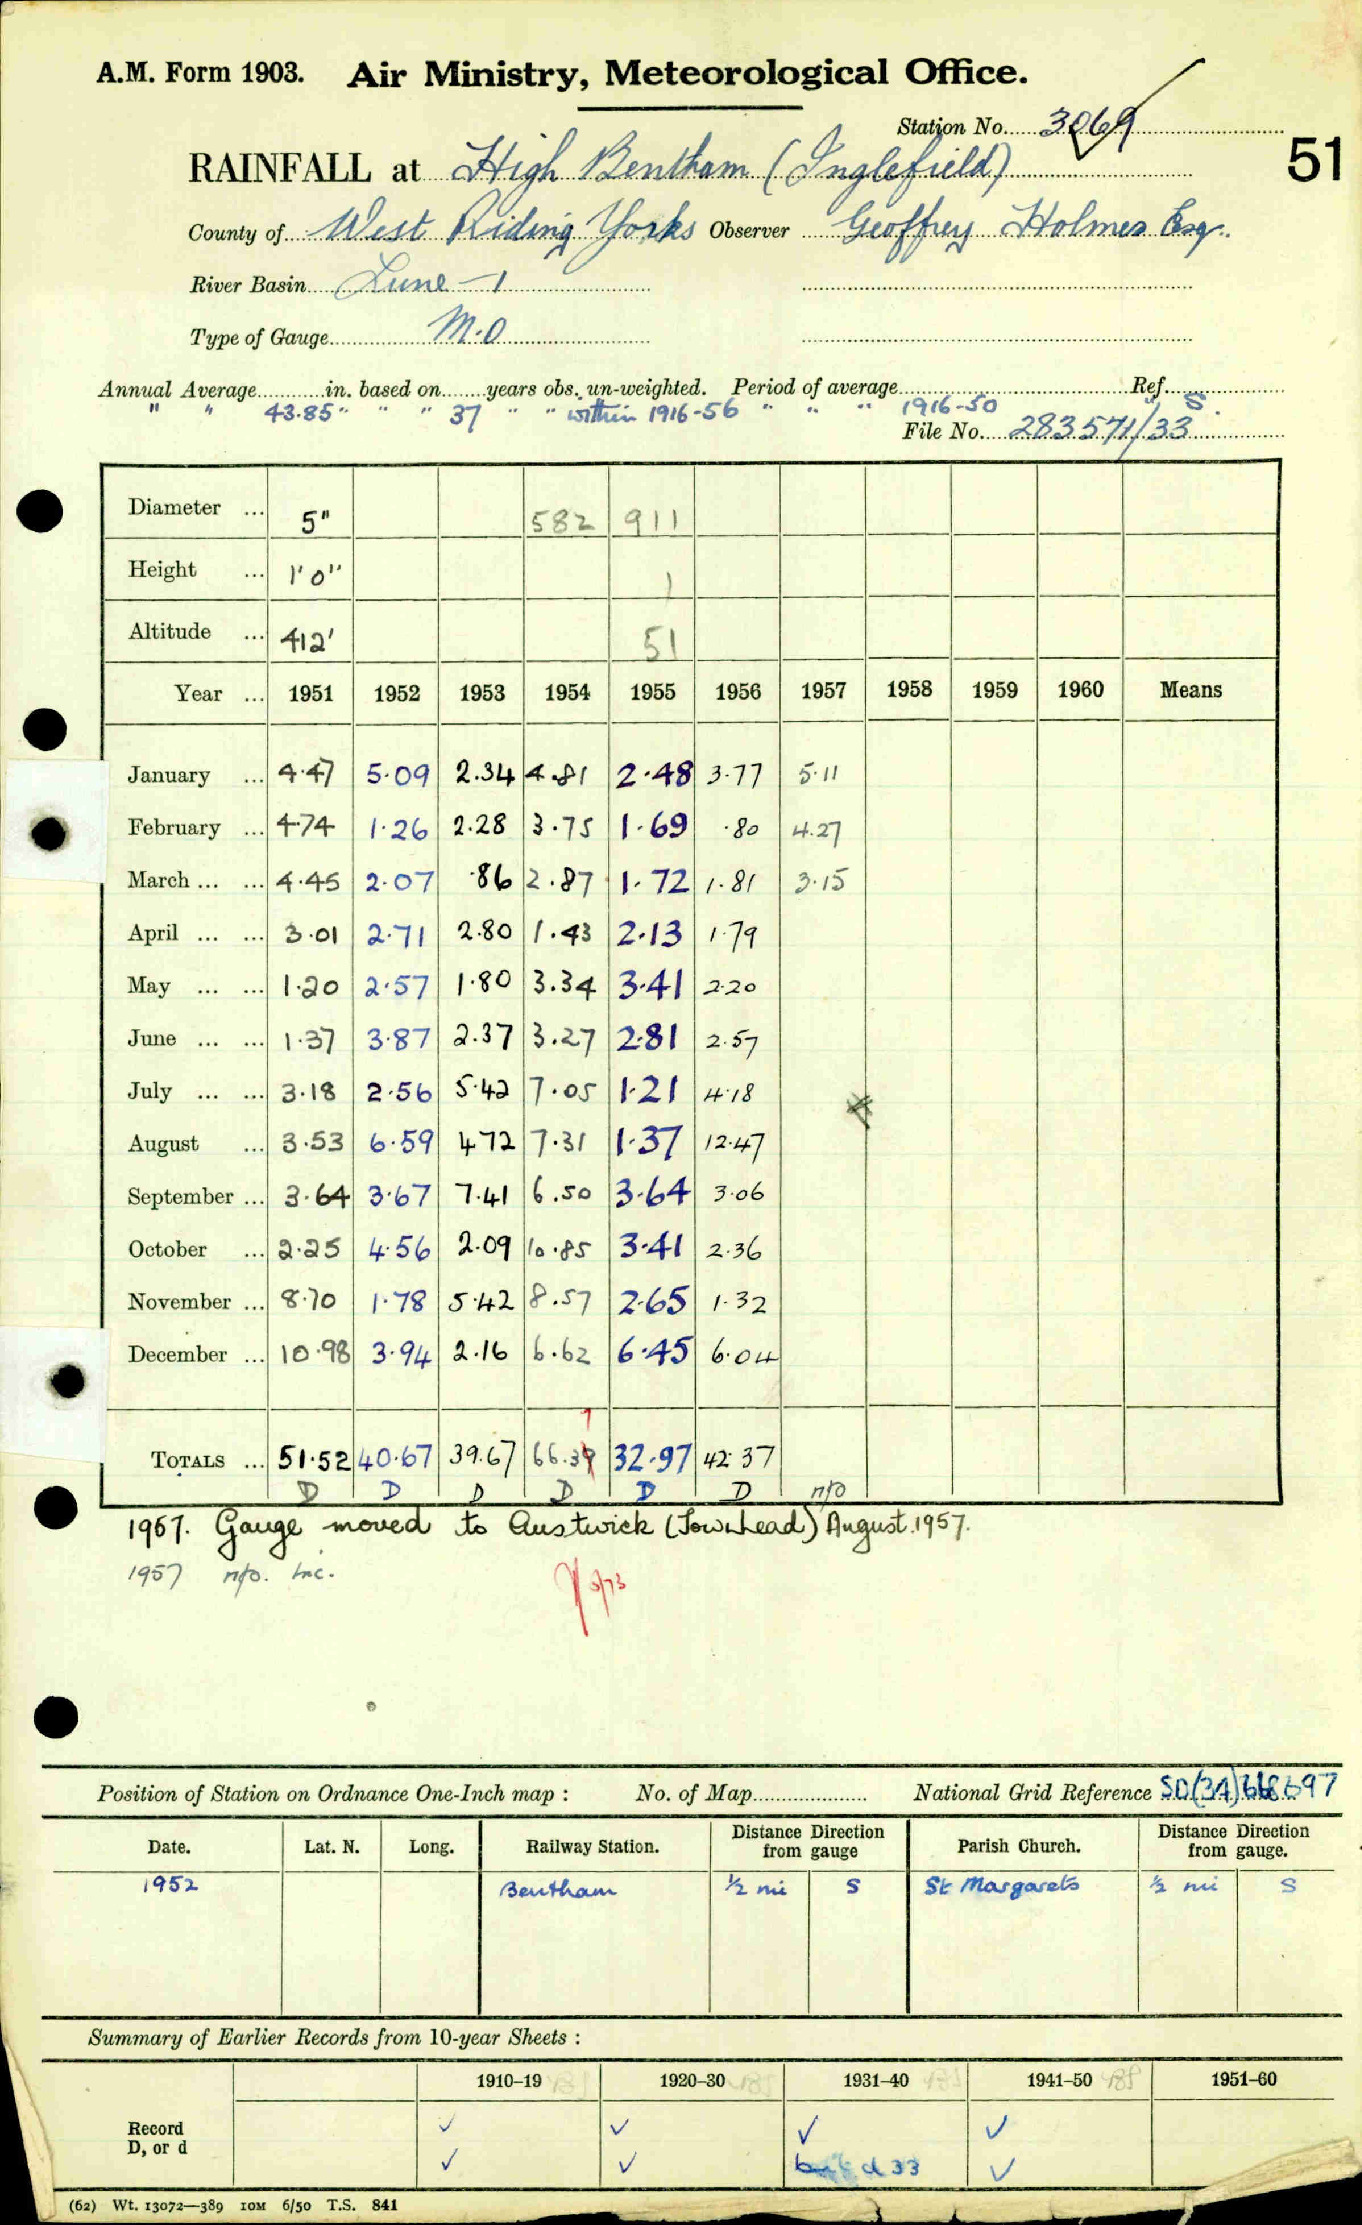 A.M. Form 1903. Air Ministry, Meteorological Office.
Station No. 3069
51
RAINFALL at High Bentham (Inglefield)
County of West Riding Yorks Observer Geoffrey Holmes Esq.
River Basin Lune - 1
Type of Gauge M.O
Annual Average in. based on years obs. un-weighted. Period of average Ref.
" " 43.85 " " " 37 " " within 1916-56 " " " 1916-50 " S.
File No. 283571/33
Diameter ... 5" 582 911
Height ... 1'0" 1
Altitude ... 412' 51
Year ... 1951 1952 1953 1954 1955 1956 1957 1958 1959 1960 Means
January ... 4.47 5.09 2.34 4.81 2.48 3.77 5.11
February ... 4.74 1.26 2.28 3.75 1.69 .80 4.27
March ... ... 4.45 2.07 .86 2.87 1.72 1.81 3.15
April ... ... 3.01 2.71 2.80 1.43 2.13 1.79
May ... ... 1.20 2.57 1.80 3.34 3.41 2.20
June ... ... 1.37 3.87 2.37 3.27 2.81 2.57
July ... ... 3.18 2.56 5.42 7.05 1.21 4.18
August ... 3.53 6.59 4.72 7.31 1.37 12.47
September ... 3.64 3.67 7.41 6.50 3.64 3.06
October ... 2.25 4.56 2.09 10.85 3.41 2.36
November ... 8.70 1.78 5.42 8.57 2.65 1.32
December ... 10.98 3.94 2.16 6.62 6.45 6.04
7
TOTALS ... 51.52 40.67 39.67 66.39 32.97 42.37
D D D D D D n/o
1957. Gauge moved to Austwick (Townhead) August 1957.
1957 n/o. Inc.
Position of Station on Ordnance One-Inch map : No. of Map National Grid Reference SD(34)668697
Date. Lat. N. Long. Railway Station. Distance Direction from gauge Parish Church. Distance Direction from gauge.
1952 Bentham ½ mi S St Margarets ½ mi S
Summary of Earlier Records from 10-year Sheets :
1910-19 1920-30 1931-40 1941-50 1951-60
Record ✓ ✓ ✓ ✓
D, or d ✓ ✓ d 33 ✓
(62) Wt. 13072—389 10M 6/50 T.S. 841